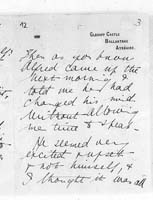 12
3
GLENAPP CASTLE
BALLANTRAE
AYRSHIRE.
Then as you know
Alfred came up the
next morning &
told me he had
changed his mind
without allowing
me time to speak.
He seemed very
excited & upset
& not himself, &
I thought it was all